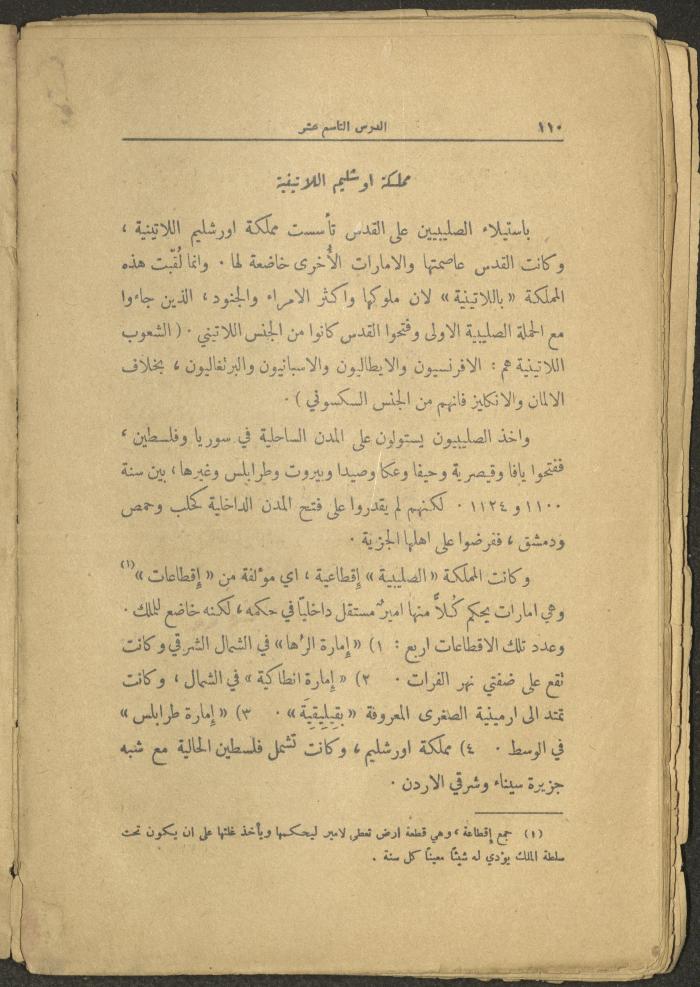 ١١٠ الدرس التاسع عشر
مملكة اورشليم اللاتينية
باستيلاء الصليبيين على القدس تأسست مملكة اورشليم اللاتينية ،
وكانت القدس عاصمتها والامارات الأُخرى خاضعة لها ٠ وانما لُقّبت هذه
المملكة « باللاتينية » لان ملوكها واكثر الامراء والجنود ، الذين جاءوا
مع الحملة الصليبية الاولى وفتحوا القدس كانوا من الجنس اللاتيني ٠ ( الشعوب
اللاتينية هم : الافرنسيون والايطاليون والاسبانيون والبرتغاليون ، بخلاف
الالمان والانكليز فانهم من الجنس السكسوني ) ٠
واخذ الصليبيون يستولون على المدن الساحلية في سوريا وفلسطين ،
ففتحوا يافا وقيصرية وحيفا وعكا وصيدا وبيروت وطرابلس وغيرها ، بين سنة
١١٠٠ و ١١٢٤ ٠ لكنهم لم يقدروا على فتح المدن الداخلية كحلب وحمص
ودمشق ، ففرضوا على اهلها الجزية ٠
وكانت المملكة « الصليبية » إقطاعية ، اي مؤلفة من « إقطاعات »(١)
وهي امارات يحكم كُلاًّ منها اميرٌ مستقل داخليّاً في حكمه ، لكنه خاضع للملك ٠
وعدد تلك الاقطاعات اربع : ١) « إمارة الرُها » في الشمال الشرقي وكانت
تقع على ضفتي نهر الفرات ٠ ٢) « إمارة انطاكية » في الشمال ، وكانت
تمتد الى ارمينية الصغرى المعروفة « بقِيلِيقِيَة » ٠ ٣) « إمارة طرابلس »
في الوسط ٠ ٤) مملكة اورشليم ، وكانت تشمل فلسطين الحالية مع شبه
جزيرة سيناء وشرقي الاردن ٠
(١) جمع إقطاعة ، وهي قطعة ارض تعطى لامير ليحكمها ويأخذ غلتها على ان يكون تحت
سلطة الملك يؤدي له شيئاً معيناً كل سنة .